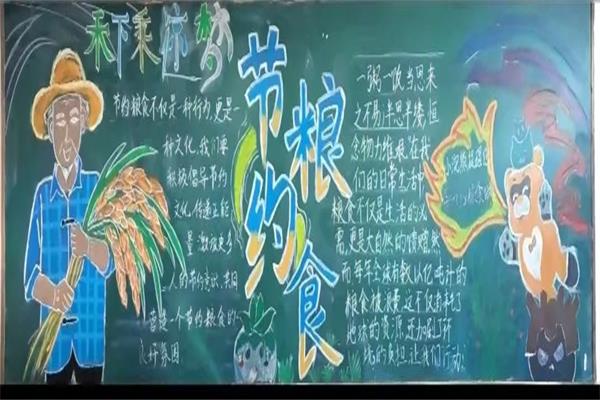 禾下乘凉梦
节约粮食
节约粮食不仅是一种行为,更是一
种文化,我们要
积极倡导节约
文化,传递正能
量,激发更多
人的节约意识,共同
营造一个节约粮食的
良好氛围
一粥一饭,当思来
之不易;半思半缕,恒
念物力维艰,在我
们的日常生活中
粮食不仅是生活的必
需,更是大自然的馈赠然
而每年全球有数以亿吨计的
粮食被浪费,这不仅
地球的资源,还加剧了环
境的负担,让我们行动